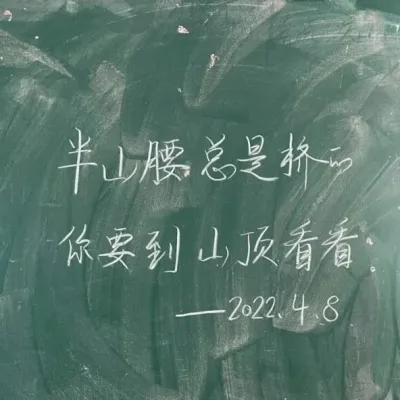 半山腰总是挤的
你要到山顶看看
——2022.4.8